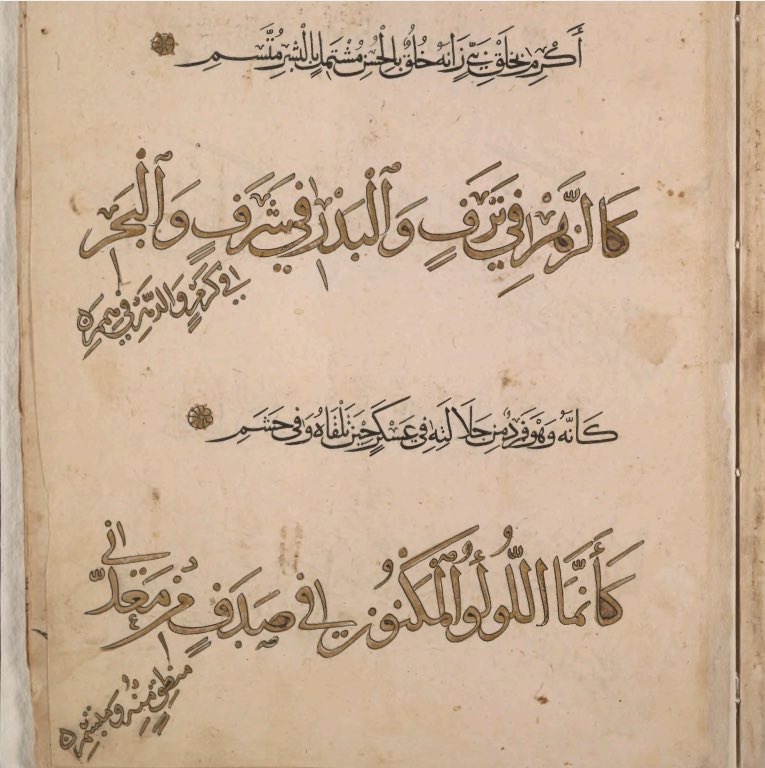 أَكْرِمْ بِخَلْقِ نَبِيٍّ زَانَهُ خُلُقٌ بِالْحُسْنِ مُشْتَمِلٍ بِالْبِشْرِ مُتَّسِمِ
كَالزَّهْرِ فِي تَرَفٍ وَالْبَدْرِ فِي شَرَفٍ وَالْبَحْرِ
فِي كَرَمٍ وَالدَّهْرِ فِي هِمَمِ
كَانَّهُ وَهْوَ فَرْدٌ مِنْ جَلَالَتِهِ فِي عَسْكَرٍ حِينَ تَلْقَاهُ وَفِي حَشَمِ
كَأَنَّمَا اللُّولُؤُ الْمَكْنُونُ فِي صَدَفٍ مِنْ مَعْدِنَي
مَنْطِقٍ مِنْهُ وَمُبْتَسَمِ